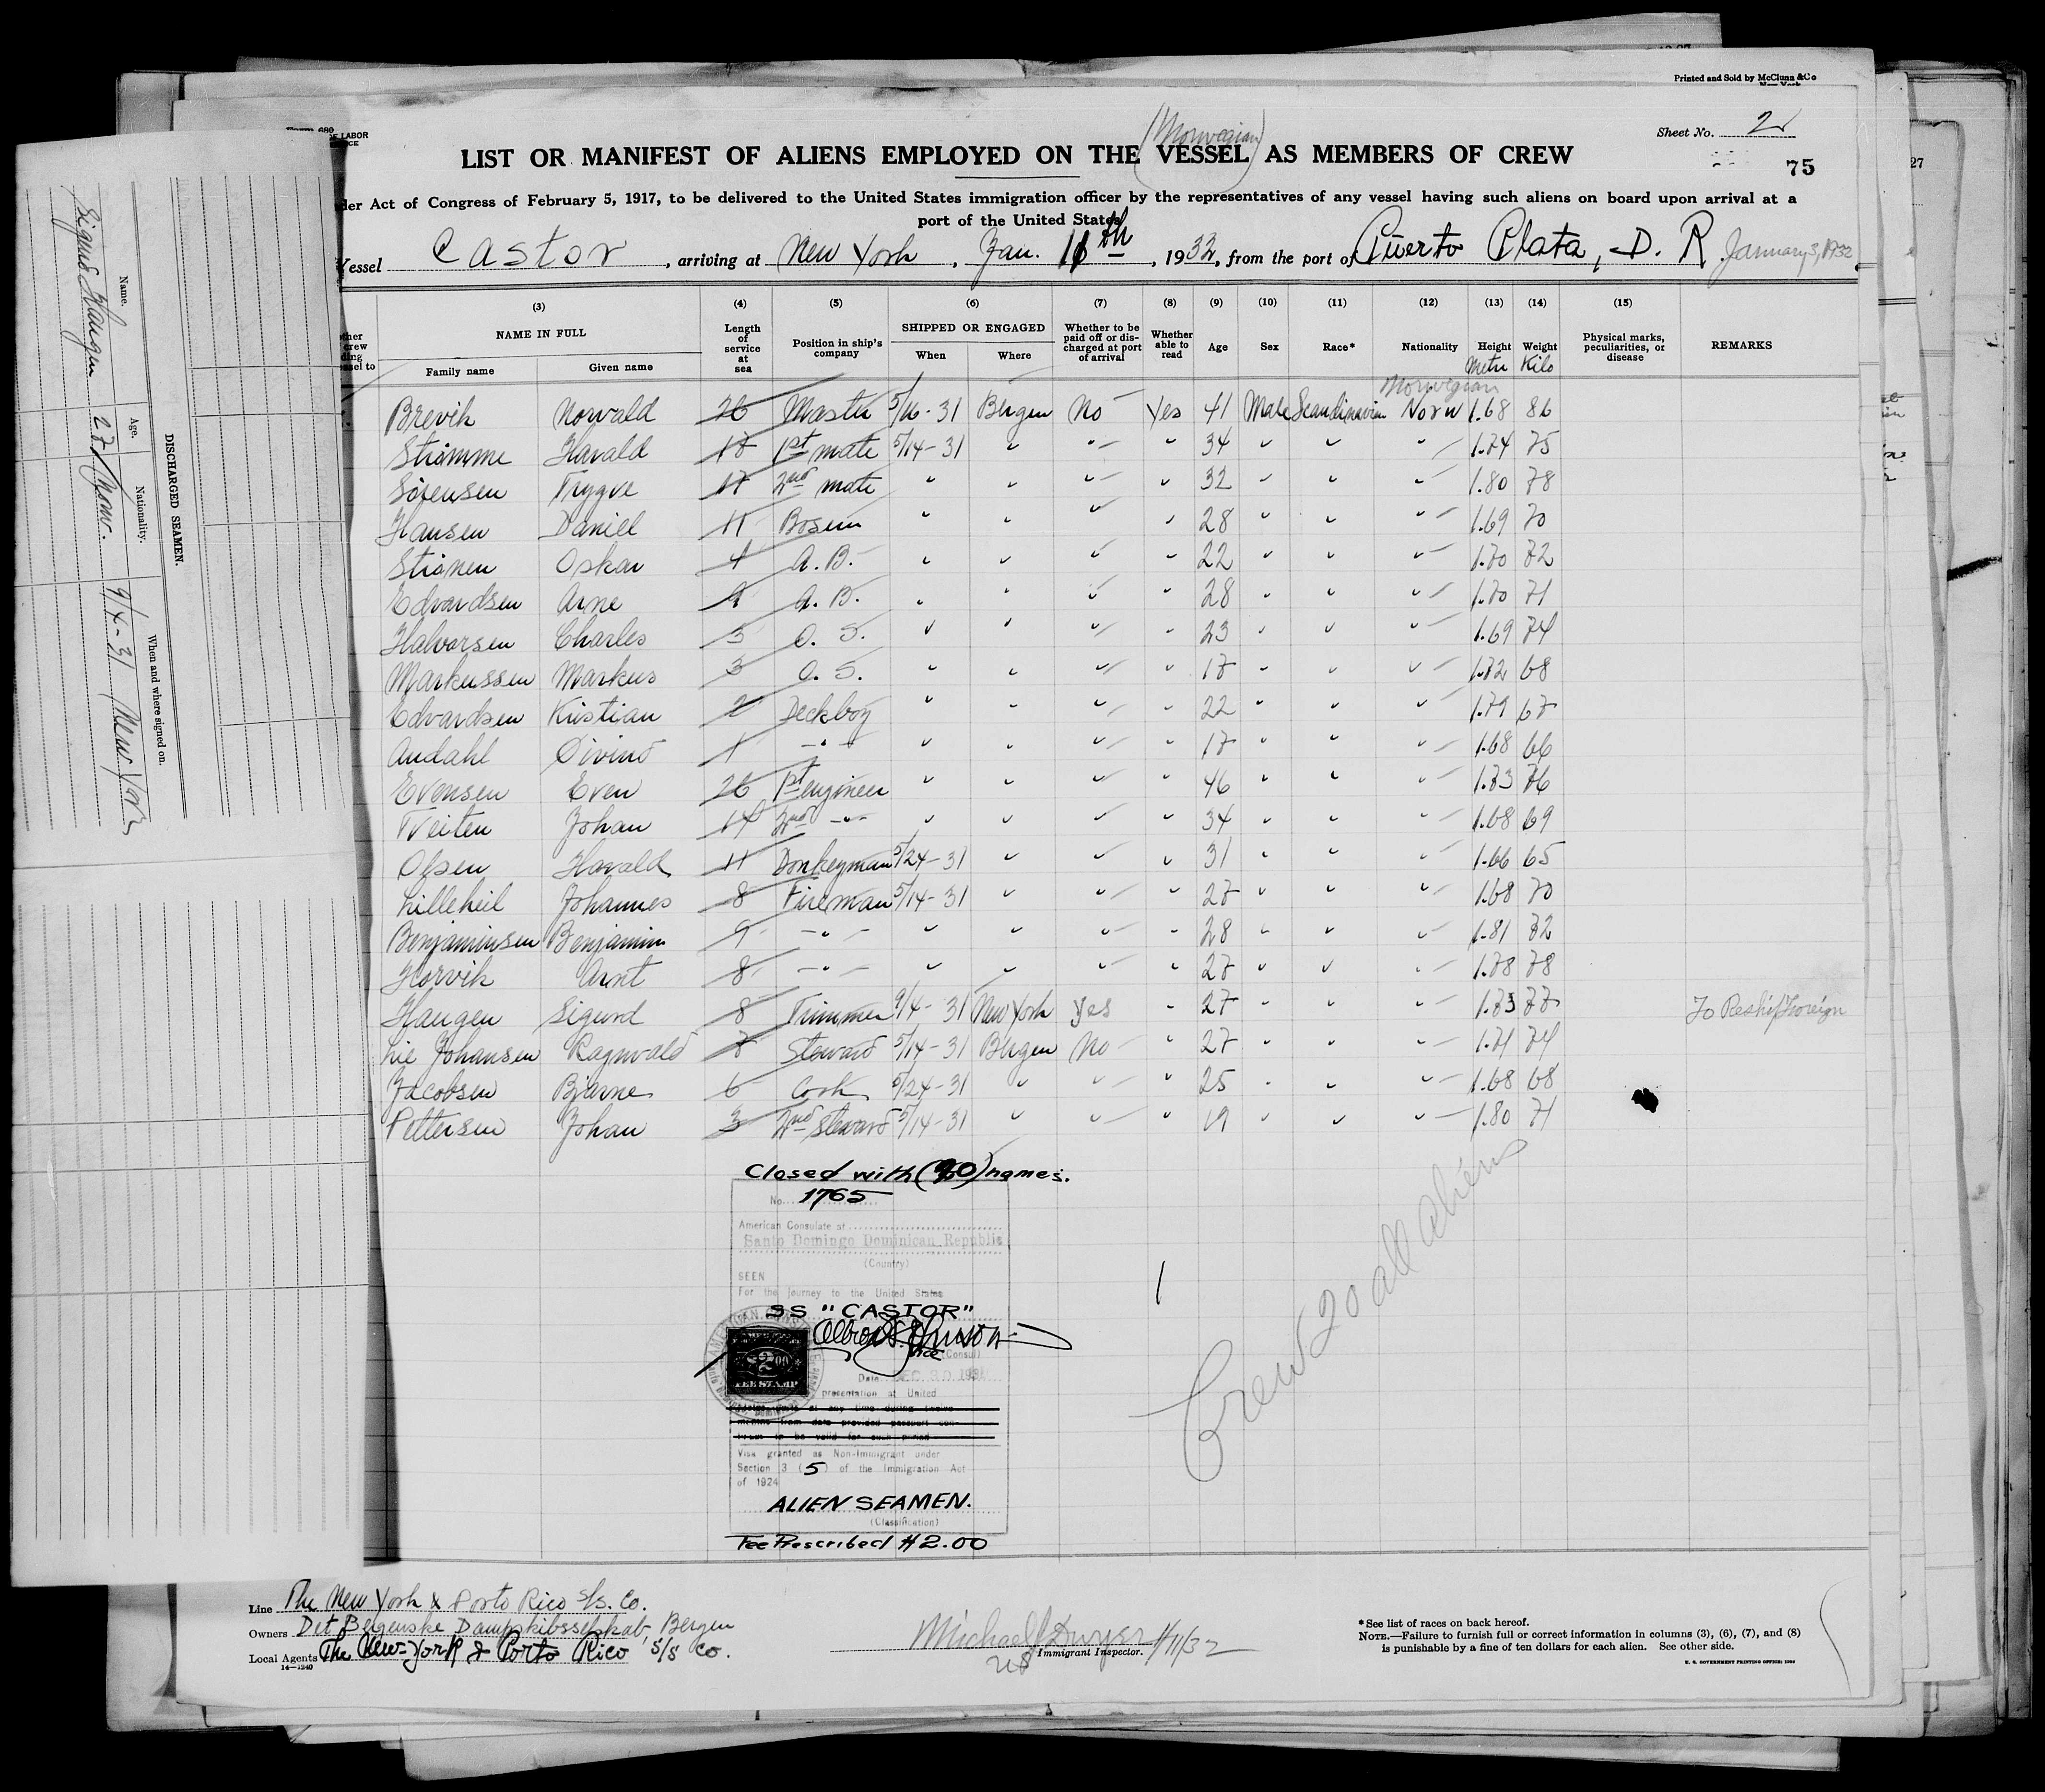 Printed and Sold by McClunn & Co
New York
Form 680
OF LABOR
Sheet No. 2
(Norwegian)
LIST OR MANIFEST OF ALIENS EMPLOYED ON THE VESSEL AS MEMBERS OF CREW
75
27
der Act of Congress of February 5, 1917, to be delivered to the United States immigration officer by the representatives of any vessel having such aliens on board upon arrival at a
port of the United States
Vessel Castor, arriving at New York, Jan. 11th, 1932, from the port of Puerto Plata, D. R. January 3, 1932
(3) (4) (5) (6) (7) (8) (9) (10) (11) (12) (13) (14) (15)
NAME IN FULL Family name Given name Length of service at sea Position in ship's company SHIPPED OR ENGAGED When Where Whether to be paid off or discharged at port of arrival Whether able to read Age Sex Race* Nationality Height Metre Weight Kilo Physical marks, peculiarities, or disease REMARKS
Norwegian
Brevik Norvald 26 Master 5/16-31 Bergen No Yes 41 Male Scandinavian Norw 1.68 86
Strømme Harald 18 1st mate 5/14-31 " " " 34 " " " 1.74 75
Sørensen Trygve 17 2nd mate " " " " 32 " " " 1.80 78
Hansen Daniel 11 Bosun " " " " 28 " " " 1.69 70
Oskar 4 A.B. " " " " 22 " " " 1.70 72
Edvardsen Arne 9 A.B. " " " " 28 " " " 1.70 71
Halvorsen Charles 3 O.S. " " " " 23 " " " 1.69 74
Markussen Markus 3 O.S. " " " " 17 " " " 1.72 68
Edvardsen Kristian 2 Deckboy " " " " 22 " " " 1.79 67
Andahl Øivind 1 -"- " " " " 17 " " " 1.68 66
Evensen Even 26 1st engineer " " " " 46 " " " 1.73 76
Tveiten Johan 14 2nd -"- " " " " 34 " " " 1.68 69
Olsen Harald 11 Donkeyman 5/24-31 " " " 31 " " " 1.66 65
Lilleheil Johannes 8 Fireman 5/14-31 " " " 27 " " " 1.68 70
Benjaminsen Benjamin 9 -"- " " " " 28 " " " 1.81 82
Horvik Arnt 8 -"- " " " " 27 " " " 1.78 78
Haugen Sigurd 8 Trimmer 9/4-31 New York Yes " 27 " " " 1.73 77 To Reship Foreign
Lie Johansen Ragnvald 7 Steward 5/14-31 Bergen No " 27 " " " 1.71 74
Jacobsen Bjarne 6 Cook 5/24-31 " " " 25 " " " 1.68 68
Pettersen Johan 3 2nd Steward 5/14-31 " " " 19 " " " 1.80 71
Closed with (20) names.
No. 1765
American Consulate at
Santo Domingo Dominican Republic
(Country)
SEEN
For the journey to the United States
SS "CASTOR"
Vice (Consul)
2.00
FEE STAMP
Date DEC 30 1931
presentation at United
States ports at any time during twelve
months from date provided passport con-
tinues to be valid for such period
Visa granted as Non-Immigrant under
Section 3 (5) of the Immigration Act
of 1924
ALIEN SEAMEN.
(Classification)
Fee Prescribed $2.00
Crew 20 all aliens
Line The New York & Porto Rico S/s. Co.
Owners Det Bergenske Dampskibsselskab, Bergen
Local Agents The New-York & Porto Rico S/S Co.
14—1240
Michael Dwyer 1/11/32
US Immigrant Inspector.
*See list of races on back hereof.
NOTE.—Failure to furnish full or correct information in columns (3), (6), (7), and (8)
is punishable by a fine of ten dollars for each alien. See other side.
U. S. GOVERNMENT PRINTING OFFICE: 1930
DISCHARGED SEAMEN.
Name. Age. Nationality. When and where signed on.
Sigurd Haugen 27 Norw. 9/4-31 New York